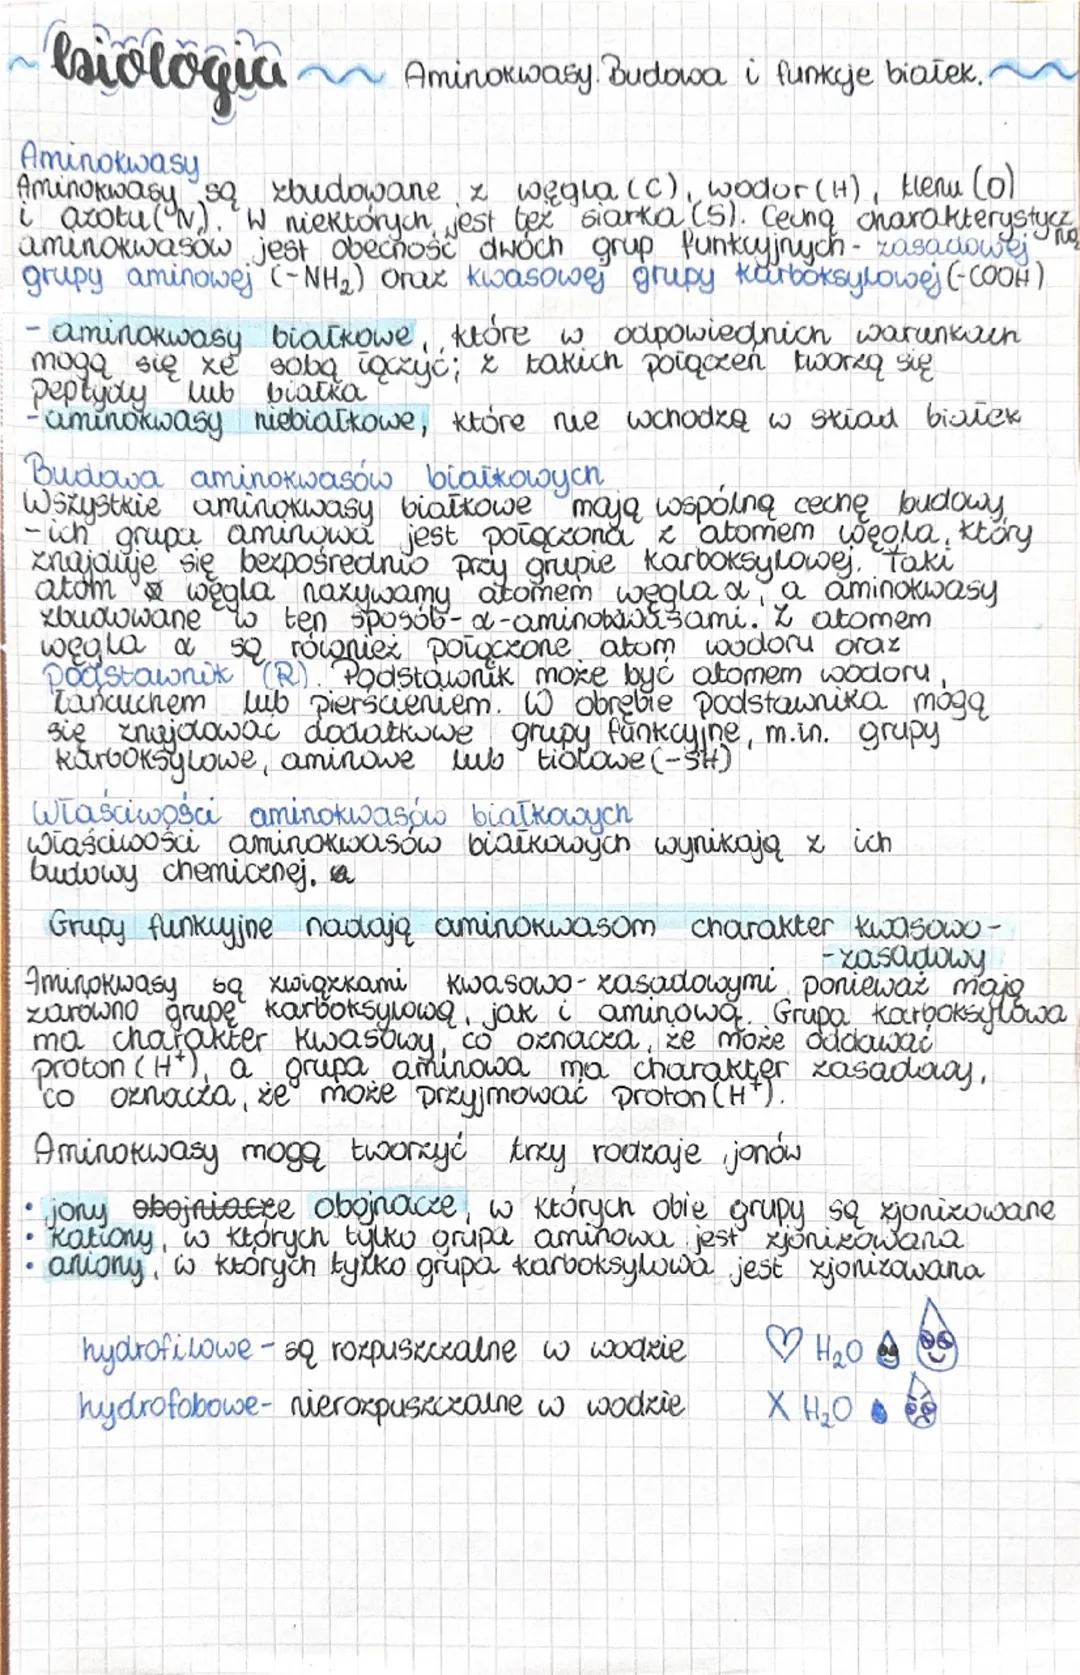 biologia Aminokwasy. Budowa i funkcje białek.
Aminokwasy
Aminokwasy są zbudowane z węgla (C), wodor (H), tlenu (O)
i azotu (N). W niektórych jest też siarka (S). Cechą charakterystycz
ną
aminokwasów jest obecność dwóch grup funkcyjnych - zasadowej
grupy aminowej (-NH₂) oraz kwasowej grupy karboksylowej (-COOH)
- aminokwasy białkowe, które w odpowiednich warunkach
mogą się ze sobą łączyć; z takich połączeń tworzą się
peptydy lub białka
- aminokwasy niebiałkowe, które nie wchodzą w skład białek
Budowa aminokwasów białkowych
Wszystkie aminokwasy białkowe mają wspólną cechę budowy
- ich grupa aminowa jest połączona z atomem węgla, który
znajduje się bezpośrednio przy grupie karboksylowej. Taki
atom węgla nazywamy atomem węgla α, a aminokwasy
zbudowane w ten sposób - α-aminokwasami. Z atomem
węgla α są również połączone atom wodoru oraz
podstawnik (R). Podstawnik może być atomem wodoru,
łańcuchem lub pierścieniem. W obrębie podstawnika mogą
się znajdować dodatkowe grupy funkcyjne, m.in. grupy
karboksylowe, aminowe lub tiolowe (-SH)
Właściwości aminokwasów białkowych
właściwości aminokwasów białkowych wynikają z ich
budowy chemicznej.
Grupy funkcyjne nadają aminokwasom charakter kwasowo-
-zasadowy
Aminokwasy są związkami kwasowo-zasadowymi ponieważ mają
zarówno grupę karboksylową, jak i aminową. Grupa karboksylowa
ma charakter kwasowy, co oznacza, że może oddawać
proton (H⁺), a grupa aminowa ma charakter zasadowy,
co oznacza, że może przyjmować proton (H⁺).
Aminokwasy mogą tworzyć trzy rodzaje jonów
• jony obojniacze obojnacze, w których obie grupy są zjonizowane
• kationy, w których tylko grupa aminowa jest zjonizowana
• aniony, w których tylko grupa karboksylowa jest zjonizowana
hydrofilowe - są rozpuszczalne w wodzie ♡ H₂O
hydrofobowe - nierozpuszczalne w wodzie X H₂O